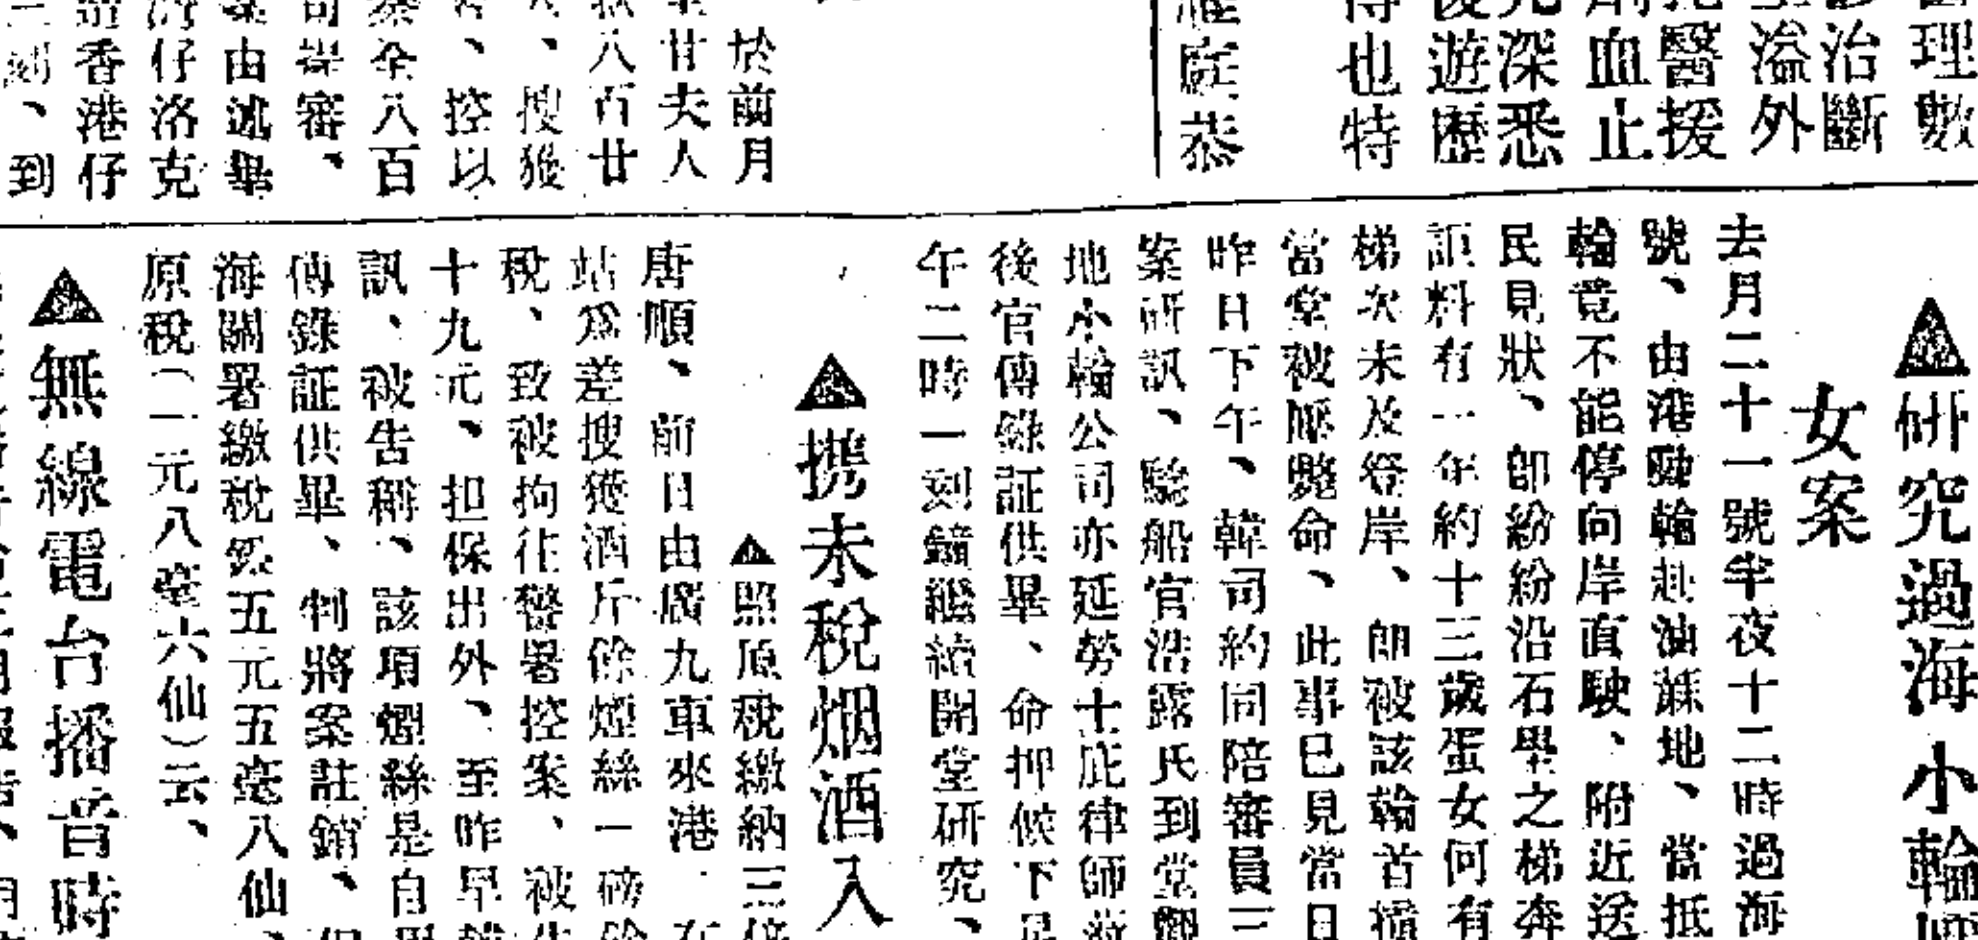 理數
治斷
溢外
醫援
血止
深悉
遊歷
也特
庭恭
於前月
廿夫人
八百廿
、搜獲
、控以
全八百
審、
由述畢
仔洛克
香港仔
、到
▲研究過海小輪
女案
去月二十一號半夜十二時過海
號、由港駛輪赴油蔴地、當抵
輪竟不能停向岸直駛、附近送
民見狀、卽紛紛沿石壆之梯奔
詎料有一年約十三歲蛋女何有
梯次未及登岸、卽被該輪首
當堂被壓斃命、此事已見當日
昨日下午、韓司約同陪審員三
案研訊、驗船官浩露氏到堂
地小輪公司亦延勞士庇律師
後官傳錄証供畢、命押候下
午二時一刻鐘繼續開堂研究、
▲携未稅烟酒入
▲照原稅繳納三倍
唐順、前日由廣九車來港
站爲差搜獲酒斤餘煙絲一磅
稅、致被拘往警署控案、被
十九元、担保出外、至昨早
訊、被告稱、該項煙絲是自
傳錄証供畢、判將案註銷、
海關署繳稅銀五元五毫八仙、
原稅（一元八毫六仙）云、
▲無線電台播音時